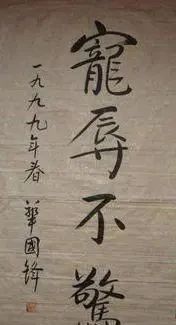 寵辱不驚
一九九九年春
華國鋒